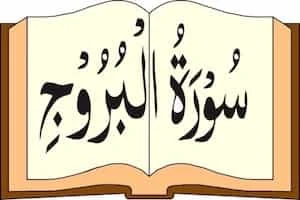 سُوْرَةُ الْبُرُوْجِ